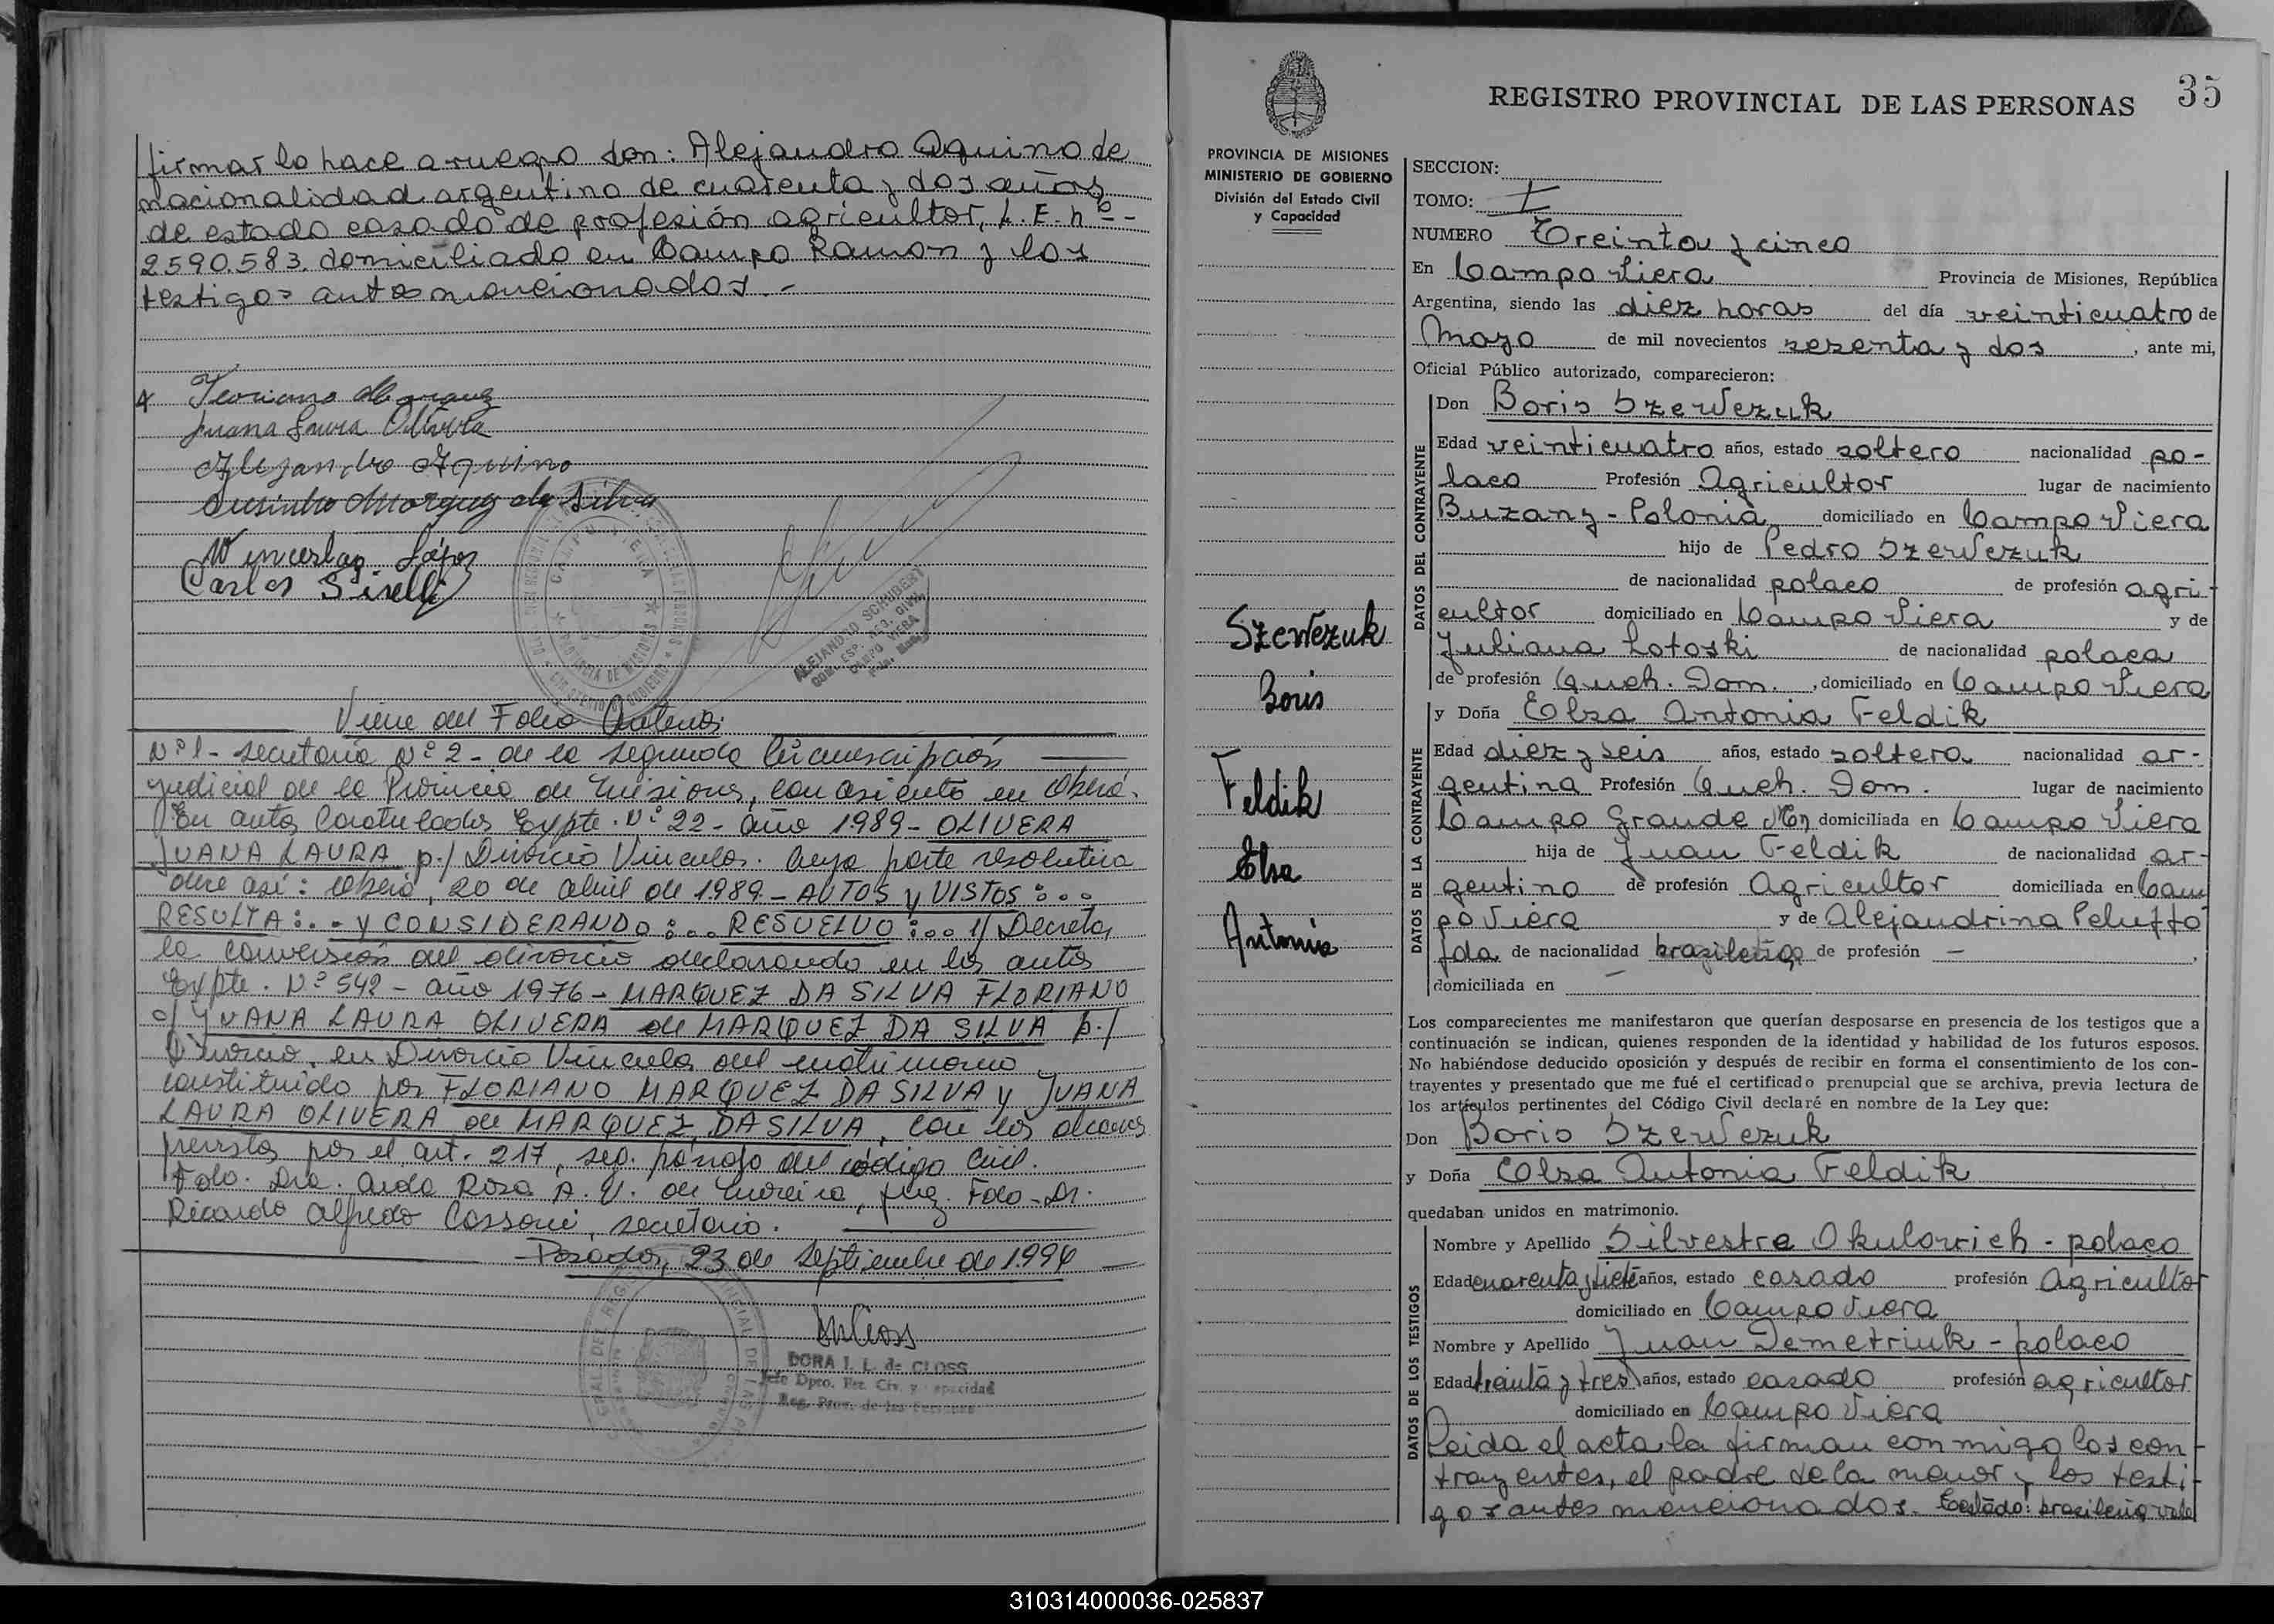 firmar lo hace a ruego don: Alejandro Aquino de
nacionalidad argentino de cuarenta y dos años
de estado casado de profesión agricultor, L.E. nº -
2590.583. domiciliado en Campo Ramon y los
testigos antes mencionados. -
Juana Laura Olivera
Alejandro Aquino
Marquez da Silva
Wenceslao López
Carlos
ALEJANDRO SCHUBERT
CAMPO VIERA
Viene del Folio Anterior
Nº 1 - secretaria Nº 2 - de la segunda Circunscripción
judicial de la Provincia de Misiones, con asiento en Oberá.
En autos Caratulados Expte. Nº 22 - año 1989 - OLIVERA
JUANA LAURA p./ Divorcio Vincular. Cuya parte resolutiva
dice así: Oberá, 20 de abril de 1989 - AUTOS y VISTOS:...
RESULTA:.. - y CONSIDERANDO:... RESUELVO:... 1/ Decretar
la conversión del divorcio declarando en los autos
Expte. Nº 542 - año 1976 - MARQUEZ DA SILVA FLORIANO
c/ JUANA LAURA OLIVERA de MARQUEZ DA SILVA p./
Divorcio, en Divorcio Vincular del matrimonio
constituido por FLORIANO MARQUEZ DA SILVA y JUANA
LAURA OLIVERA de MARQUEZ DA SILVA, con los alcances
previstos por el art. 217, seg. párrafo del código Civil.
Fdo. Dra. Aida Rosa A. V. de Moreira, Juez. Fdo - Dr.
Ricardo Alfredo Cassoni, secretario.
Posadas, 23 de Septiembre de 1994
DORA I. L. de CLOSS
Jefe Dpto. Est. Civ. y Capacidad
Reg. Prov. de las Personas
35
REGISTRO PROVINCIAL DE LAS PERSONAS
PROVINCIA DE MISIONES
MINISTERIO DE GOBIERNO
División del Estado Civil
y Capacidad
Szewczuk
Boris
Feldik
Elsa
Antonia
SECCION:
TOMO: I
NUMERO Treinta y cinco
En Campo Viera Provincia de Misiones, República
Argentina, siendo las diez horas del día veinticuatro de
Mayo de mil novecientos sesenta y dos, ante mi,
Oficial Público autorizado, comparecieron:
DATOS DEL CONTRAYENTE
Don Boris Szewczuk
Edad veinticuatro años, estado soltero nacionalidad po-
laco Profesión Agricultor lugar de nacimiento
Buzany - Polonia, domiciliado en Campo Viera
hijo de Pedro Szewczuk
de nacionalidad polaco de profesión agri-
cultor domiciliado en Campo Viera y de
Juliana Lotoski de nacionalidad polaca
de profesión Queh. Dom., domiciliado en Campo Viera
DATOS DE LA CONTRAYENTE
y Doña Elsa Antonia Feldik
Edad diez y seis años, estado soltera nacionalidad ar-
gentina Profesión Queh. Dom. lugar de nacimiento
Campo Grande Mnes domiciliada en Campo Viera
hija de Juan Feldik de nacionalidad ar-
gentino de profesión Agricultor domiciliada en Cam
po Viera y de Alejandrina Peluffo
fda. de nacionalidad brasileña de profesión —,
domiciliada en —
Los comparecientes me manifestaron que querían desposarse en presencia de los testigos que a
continuación se indican, quienes responden de la identidad y habilidad de los futuros esposos.
No habiéndose deducido oposición y después de recibir en forma el consentimiento de los con-
trayentes y presentado que me fué el certificado prenupcial que se archiva, previa lectura de
los artículos pertinentes del Código Civil declaré en nombre de la Ley que:
Don Boris Szewczuk
y Doña Elsa Antonia Feldik
quedaban unidos en matrimonio.
DATOS DE LOS TESTIGOS
Nombre y Apellido Silvestre Okulovich - polaco
Edad cuarenta y siete años, estado casado profesión Agricultor
domiciliado en Campo Viera
Nombre y Apellido Juan Demetriuk - polaco
Edad treinta y tres años, estado casado profesión agricultor
domiciliado en Campo Viera
Leida el acta la firman conmigo los con-
trayentes, el padre de la menor y los testi-
gos antes mencionados. Testado: brasileña vale
310314000036-025837